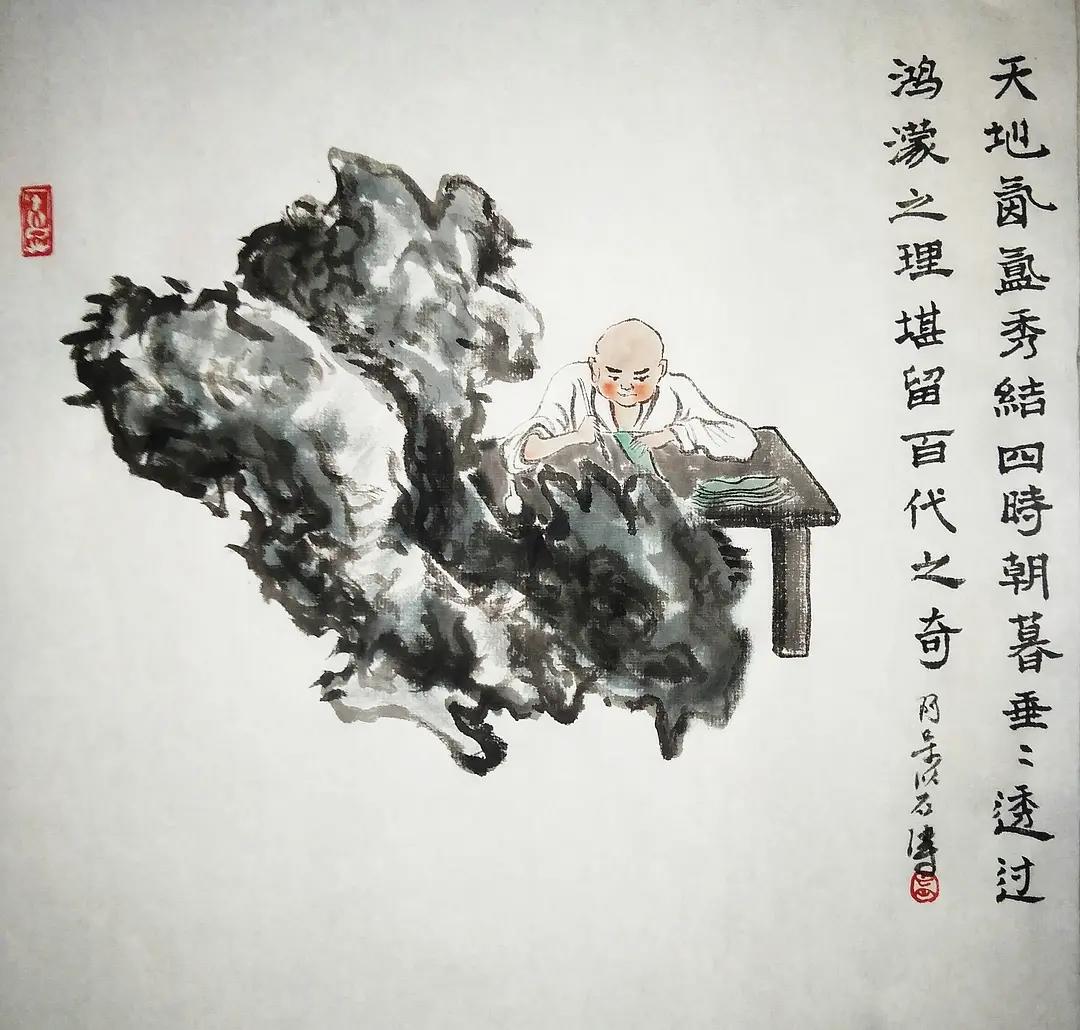 天地氤氲秀結四時朝暮垂〻透过
鸿濛之理堪留百代之奇 石濤